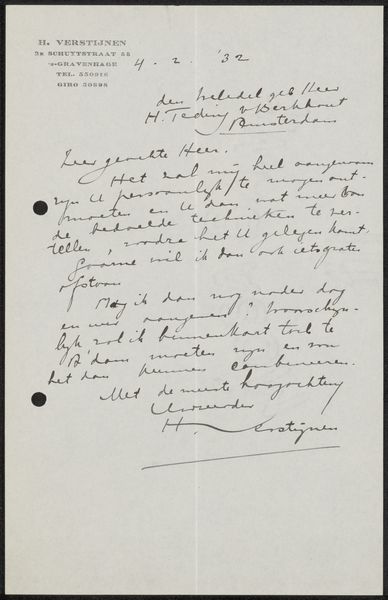 H. VERSTIJNEN
2e SCHUYTSTRAAT 55
'S-GRAVENHAGE
TEL. 550916
GIRO 30898
4. 2. '32
den weledel geb Heer
H. Teding v Berkhout
Amsterdam
Zeer geachte Heer.
Het zal mij heel aangenaam
zijn U persoonlijk te mogen ont-
moeten en U dan wat meer van
de bedoelde technieken te ver-
tellen, zoodra het U gelegen komt.
Gaarne wil ik dan ook iets gratis
afstaan
Mag ik dan nog nader dag
en uur aangeven? Waarschijn-
lijk zal ik binnenkort toch te
A'dam moeten zijn en zou
het dan kunnen combineeren.
Met de meeste hoogachting
Uw
H. Verstijnen